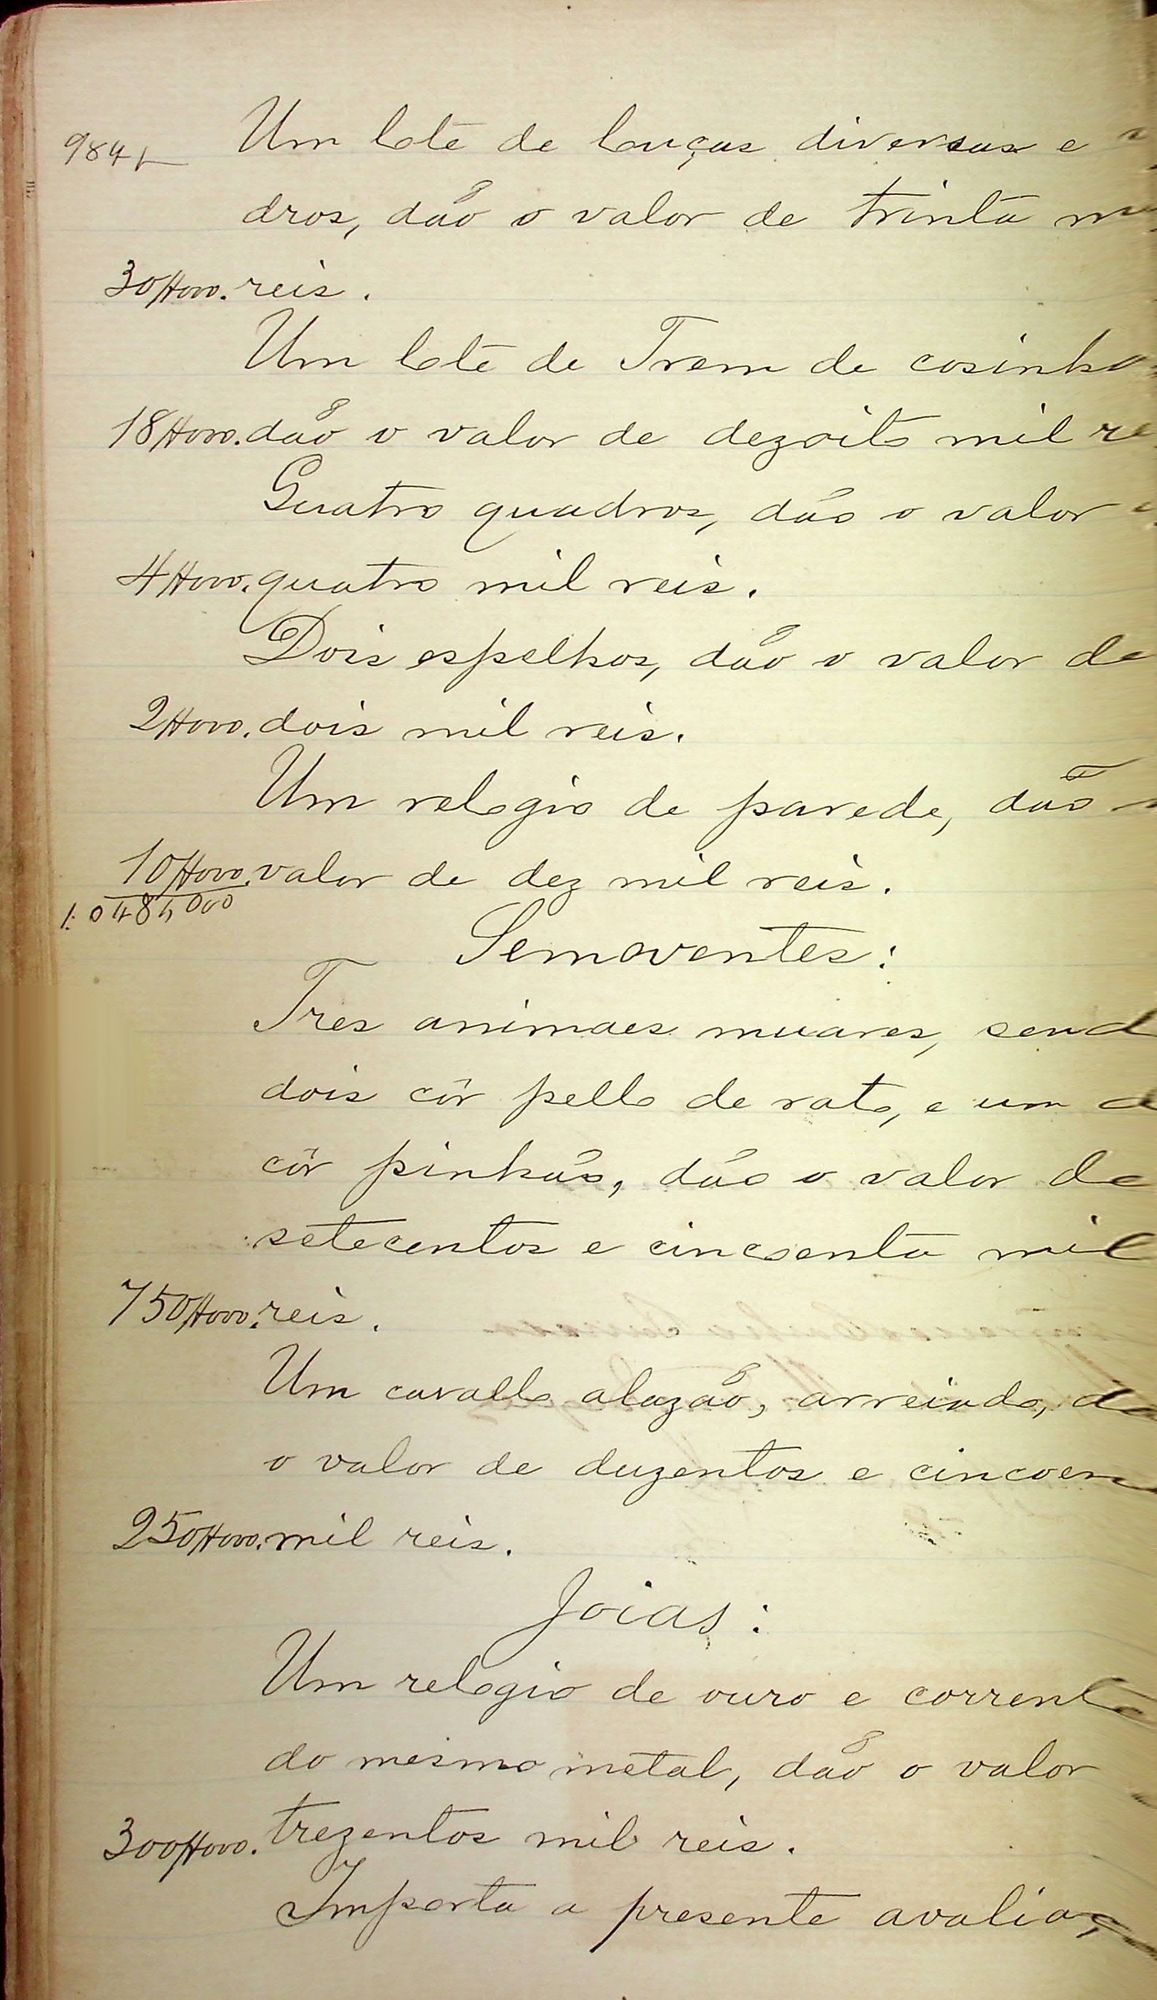 984$ Um lote de louças diversas e
dros, dão o valor de trinta
30$000. reis.
Um lote de Trem de cosinha
18$000. dão o valor de dezoito mil re
Quatro quadros, dão o valor
4$000. quatro mil reis.
Dois espelhos, dão o valor de
2$000. dois mil reis.
Um relogio de parede, dão
10$000. valor de dez mil reis.
1:048$000
Semoventes:
Tres animaes muares, send
dois côr pello de rato, e um
côr pinhão, dão o valor de
setecentos e cincoenta mil
750$000. reis.
Um cavallo alazão, arreiado, da
o valor de duzentos e cincoen
250$000. mil reis.
Joias:
Um relogio de ouro e corrente
do mesmo metal, dão o valor
300$000. trezentos mil reis.
Importa a presente avalia